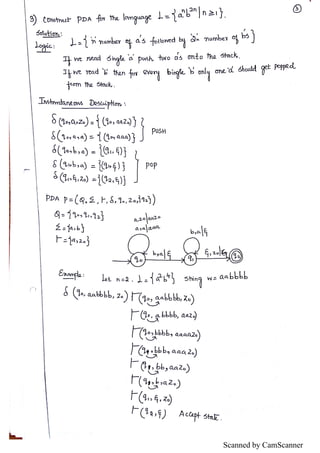 ③
3) Construct PDA for the language L = {aⁿb²ⁿ | n ≥ 1}.
Solution:
Logic: L = { 'n' number of a's followed by 2n number of bs }
If we read single 'a' push two a's onto the stack.
If we read 'b' then for every single 'b' only one 'a' should get popped
from the stack.
Instantaneous Description:
δ(q₀,a,z₀) = {(q₀, aaz₀)}
δ(q₀,a,a) = {(q₀, aaa)} } PUSH
δ(q₀,b,a) = {(q₁, ε)}
δ(q₁,b,a) = {(q₁, ε)} } POP
δ(q₁,ε,z₀) = {(q₂, ε)}
PDA P = (Q, Σ, Γ, δ, q₀, z₀, {q₂})
Q = {q₀, q₁, q₂}
Σ = {a,b}
Γ = {a,z₀}
a,z₀|aaz₀
a,a|aaa
b,a|ε
b,a|ε
ε,z₀|ε
q₀ q₁ q₂
Example: Let n=2. L = {a²b⁴} string w = aabbbb
δ(q₀, aabbbb, z₀) ⊢ (q₀, aabbbb, z₀)
⊢ (q₀, abbbb, aaz₀)
⊢ (q₀, bbbb, aaaaz₀)
⊢ (q₁, bbb, aaaz₀)
⊢ (q₁, bb, aaz₀)
⊢ (q₁, b, az₀)
⊢ (q₁, ε, z₀)
⊢ (q₂, ε) Accept state.
Scanned by CamScanner